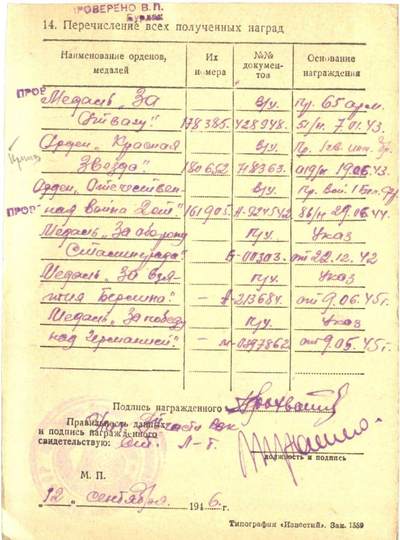 ПРОВЕРЕНО В.П.
Бурлак
14. Перечисление всех полученных наград
Наименование орденов, медалей
Их номера
№№ документов
Основание награждения
Медаль „За В/у. Пр. 65 арм.
Отвагу“ 178385. 428948. 51/н. 7.01.43.
Орден „Красная В/у.
Звезда“. 180652 718363. 19.06.43.
Орден „Отечествен- В/у.
ная война 2 ст.“ 161905. А-924542 86/н 29.06.44.
Медаль „За оборону П/у. Указ
Сталинграда“ Б-00303. от 22.12.42
Медаль „За взя- П/у. Указ
тия Берлина“. — А-213684. от 9.06.45 г.
Медаль „За победу П/у. Указ
над Германией“. — М-0397862 от 9.05.45 г.
Подпись награжденного
Правильность данных
и подпись награжденного
свидетельствую: ст. Л-т.
должность и подпись
М. П.
„12“ сентября. 1946 г.
Типография «Известий». Зак. 1559